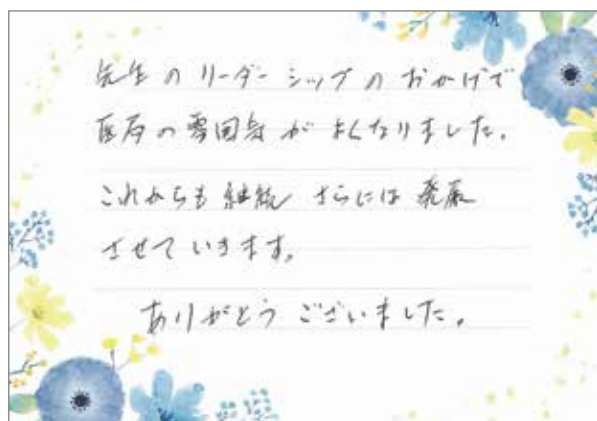 先生のリーダーシップのおかげで
医局の雰囲気がよくなりました。
これからも継続 さらには発展
させていきます。
ありがとうございました。